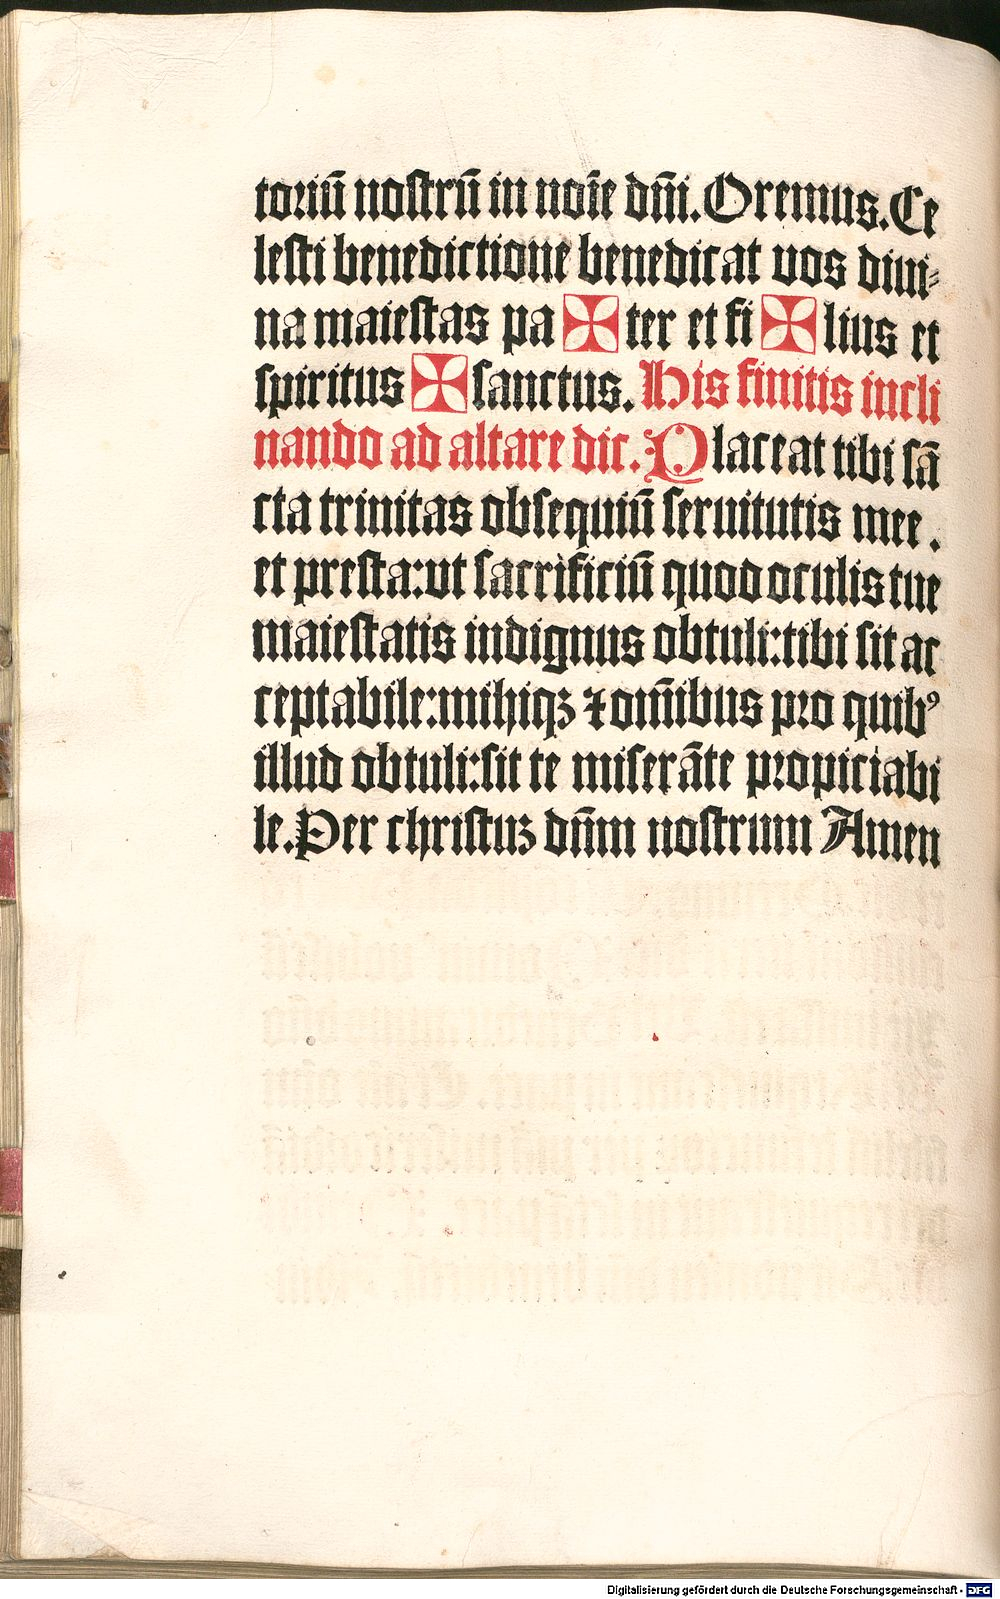 toriū nostrū in noīe dn̄i. Oremus. Ce
lesti benedictione benedicat vos divi⸗
na maiestas pa ✠ ter et fi ✠ lius et
spiritus ✠ sanctus. His finitis incli
nando ad altare dic. Placeat tibi sā
cta trinitas obsequiū servitutis mee .
et presta: ut sacrificiū quod oculis tue
maiestatis indignus obtuli: tibi sit ac
ceptabile: mihiqꝫ ⁊ om̄ibus pro quibꝰ
illud obtuli: sit te miserāte propiciabi
le. Per christuꝫ dn̄m nostrum Amen
Digitalisierung gefördert durch die Deutsche Forschungsgemeinschaft - DFG